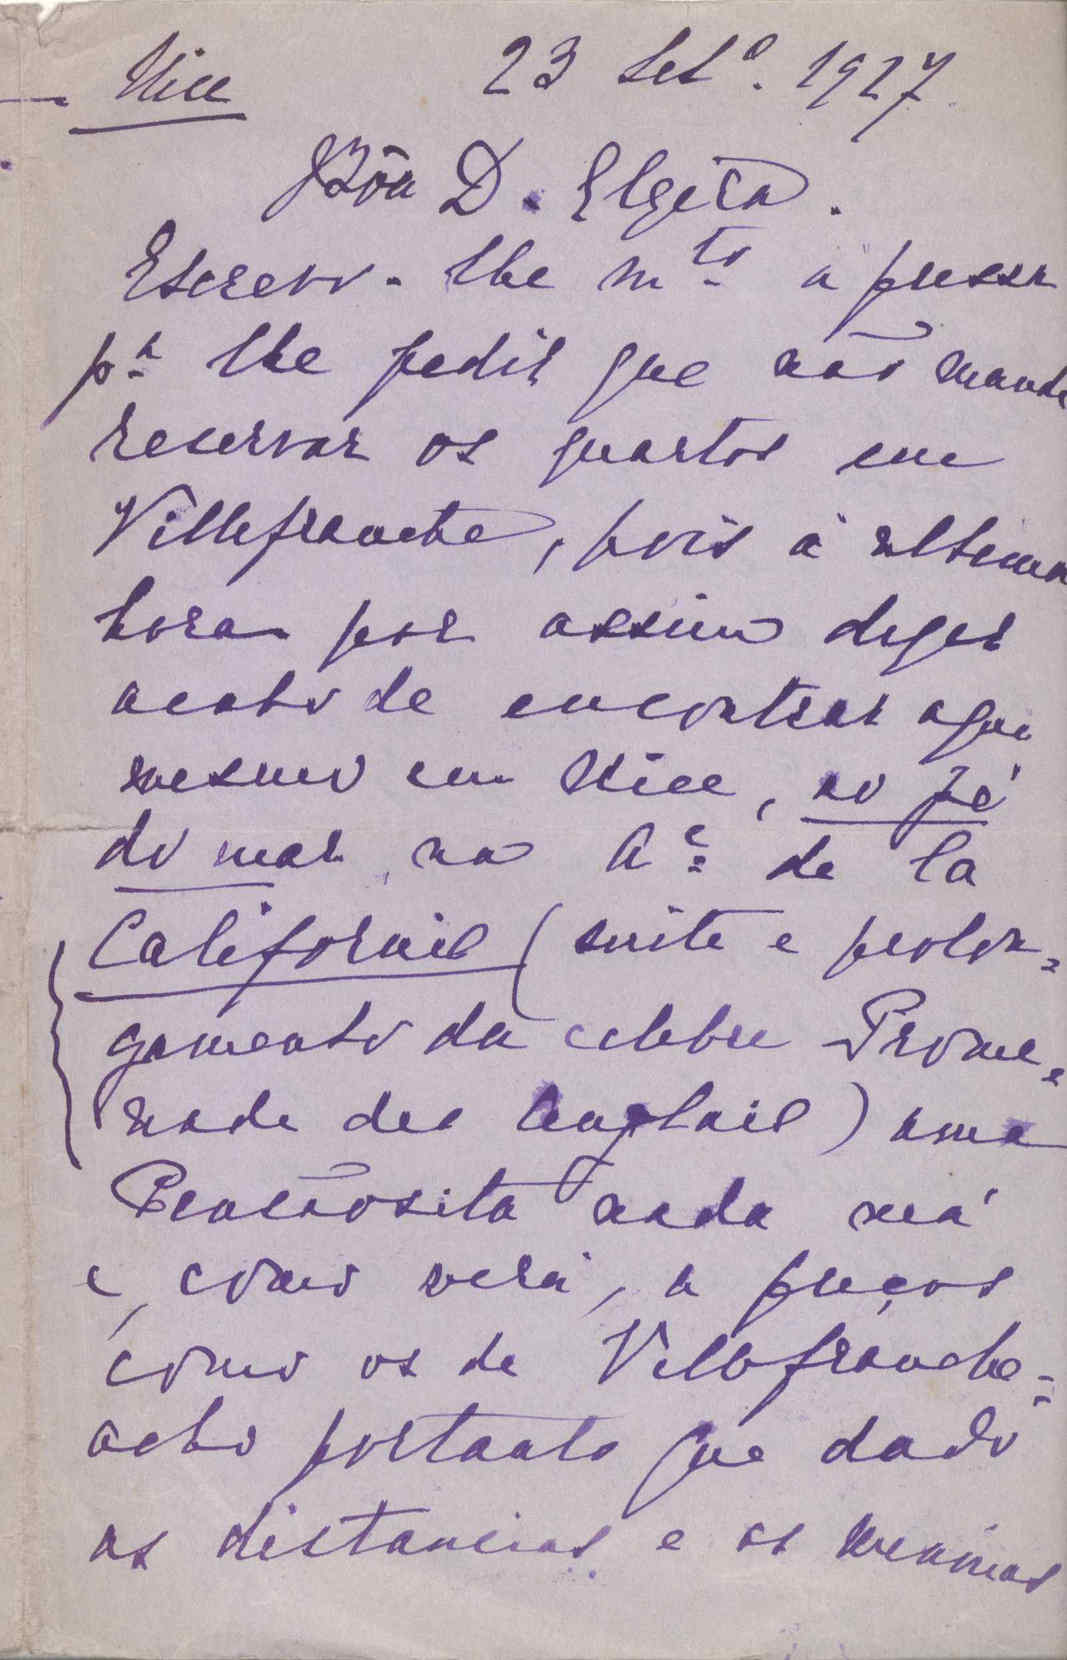 Nice 23 Set.º 1927
Bôa D. Elzira.
Escrevo-lhe m.to à pressa
p.a lhe pedir que não mande
reservar os quartos em
Villefranche, pois à ultima
hora por assim dizer
acabo de encontrar aqui
mesmo em Nice, ao pé
do mar, na A.e de la
Californie (suite e prolon=
gamento da celebre Prome=
nade des Anglais) uma
Pensãosita nada má
e, como verá, a preços
como os de Villefranche=
acho portanto que dado
as distancias e as meninas